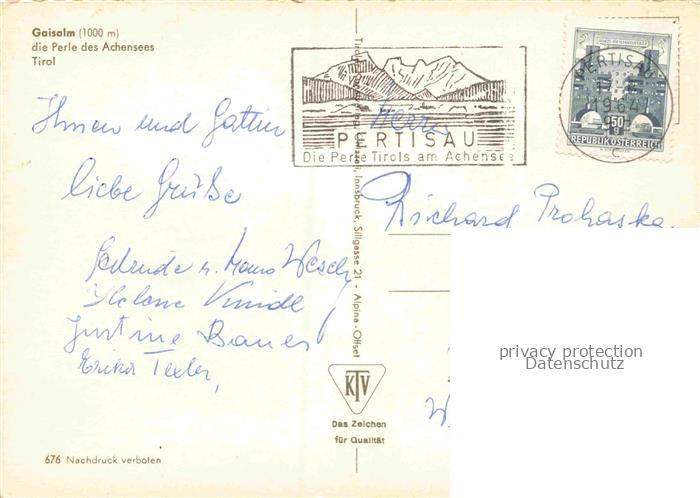 Gaisalm (1000 m)
die Perle des Achensees
Tirol
Ihnen und Gattin
liebe Grüße
Helene
Justine Bauer
Erika
676 Nachdruck verboten
Innsbruck, Sillgasse 21 - Alpine-Offset
KTV
Das Zeichen
für Qualität
PERTISAU
Die Perle Tirols am Achensee
PERTISAU
1964
c
50 g
REPUBLIK ÖSTERREICH
Herrn
Richard Prohaska
W
privacy protection
Datenschutz